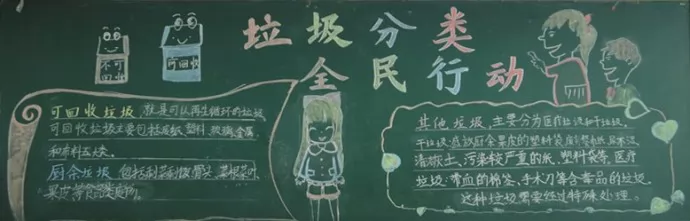 垃圾分类
全民行动
不可回收
可回收
可回收垃圾 就是可以再生循环的垃圾
可回收垃圾主要包括废纸,塑料,玻璃,金属
和布料五大类.
厨余垃圾 包括剩菜剩饭,骨头,菜根菜叶
果皮等食品类废物.
其他垃圾,主要分为医疗垃圾和干垃圾.
干垃圾:盛放厨余果皮的塑料袋
清扫灰土、污染较严重的纸、塑料袋等.医疗
垃圾:带血的棉签、手术刀等含毒品的垃圾.
这种垃圾需要经过特殊处理。